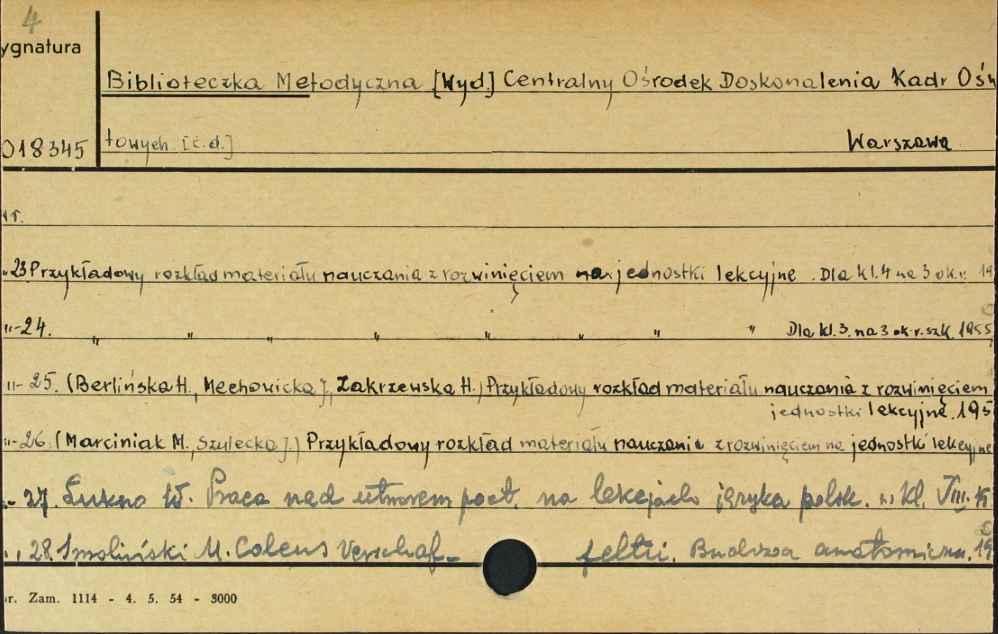 4
ygnatura
Biblioteczka Metodyczna [Wyd.] Centralny Ośrodek Doskonalenia Kadr Ośw
018345 towych [c.d.] Warszawa
nr.
„ 23. Przykładowy rozkład materiału nauczania z rozwinięciem na jednostki lekcyjne. Dla kl. 4 na 3 okr. 19
„-24. " " " " " " " " Dla kl. 3. na 3 okr. szk. 1955
„-25. (Berlińska H., Mechowicka J., Zakrzewska H.) Przykładowy rozkład materiału nauczania z rozwinięciem
jednostki lekcyjne. 195
„-26. (Marciniak M., Szylecka J.) Przykładowy rozkład materiału nauczania z rozwinięciem na jednostki lekcyjne
„- 27. W. Praca nad utworem poet. na lekcjach języka polsk. w kl. VIII. 19
„, 28. Smoliński M. Coleus Verschaf- feltii. Budowa anatomiczna. 19
r. Zam. 1114 - 4. 5. 54 - 3000